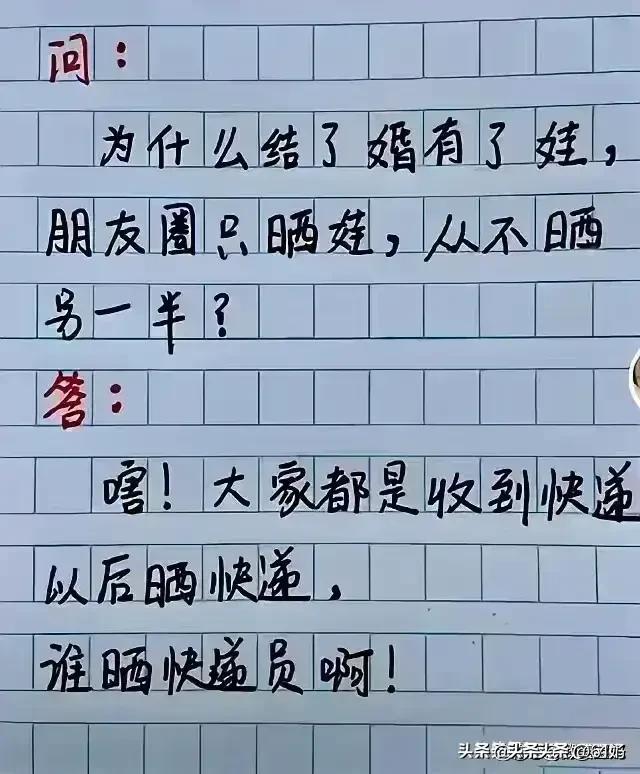 问：
为什么结了婚有了娃，
朋友圈只晒娃，从不晒
另一半？
答：
嗐！大家都是收到快递
以后晒快递，
谁晒快递员啊！